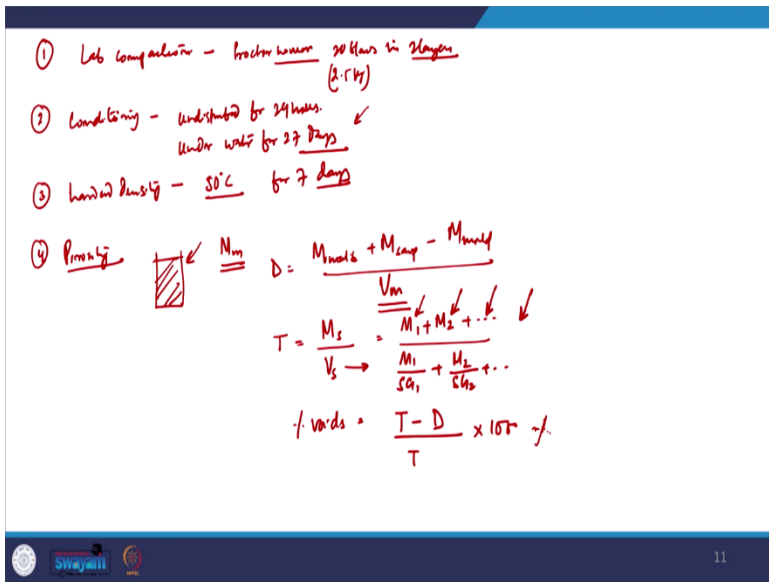 ① Lab compaction - Proctor hammer 20 blows in 2 layers
(2.5 kg)
② Conditioning - undisturbed for 24 hours.
Under water for 27 days
③ Hardened Density - 50°C for 7 days
④ Porosity
M_m
D = (M_mold + M_samp - M_mold) / V_m
T = M_s / V_s → = (M_1 + M_2 + ...) / (M_1/SG_1 + M_2/SG_2 + ...)
% voids = (T - D) / T × 100 %
swayam
11